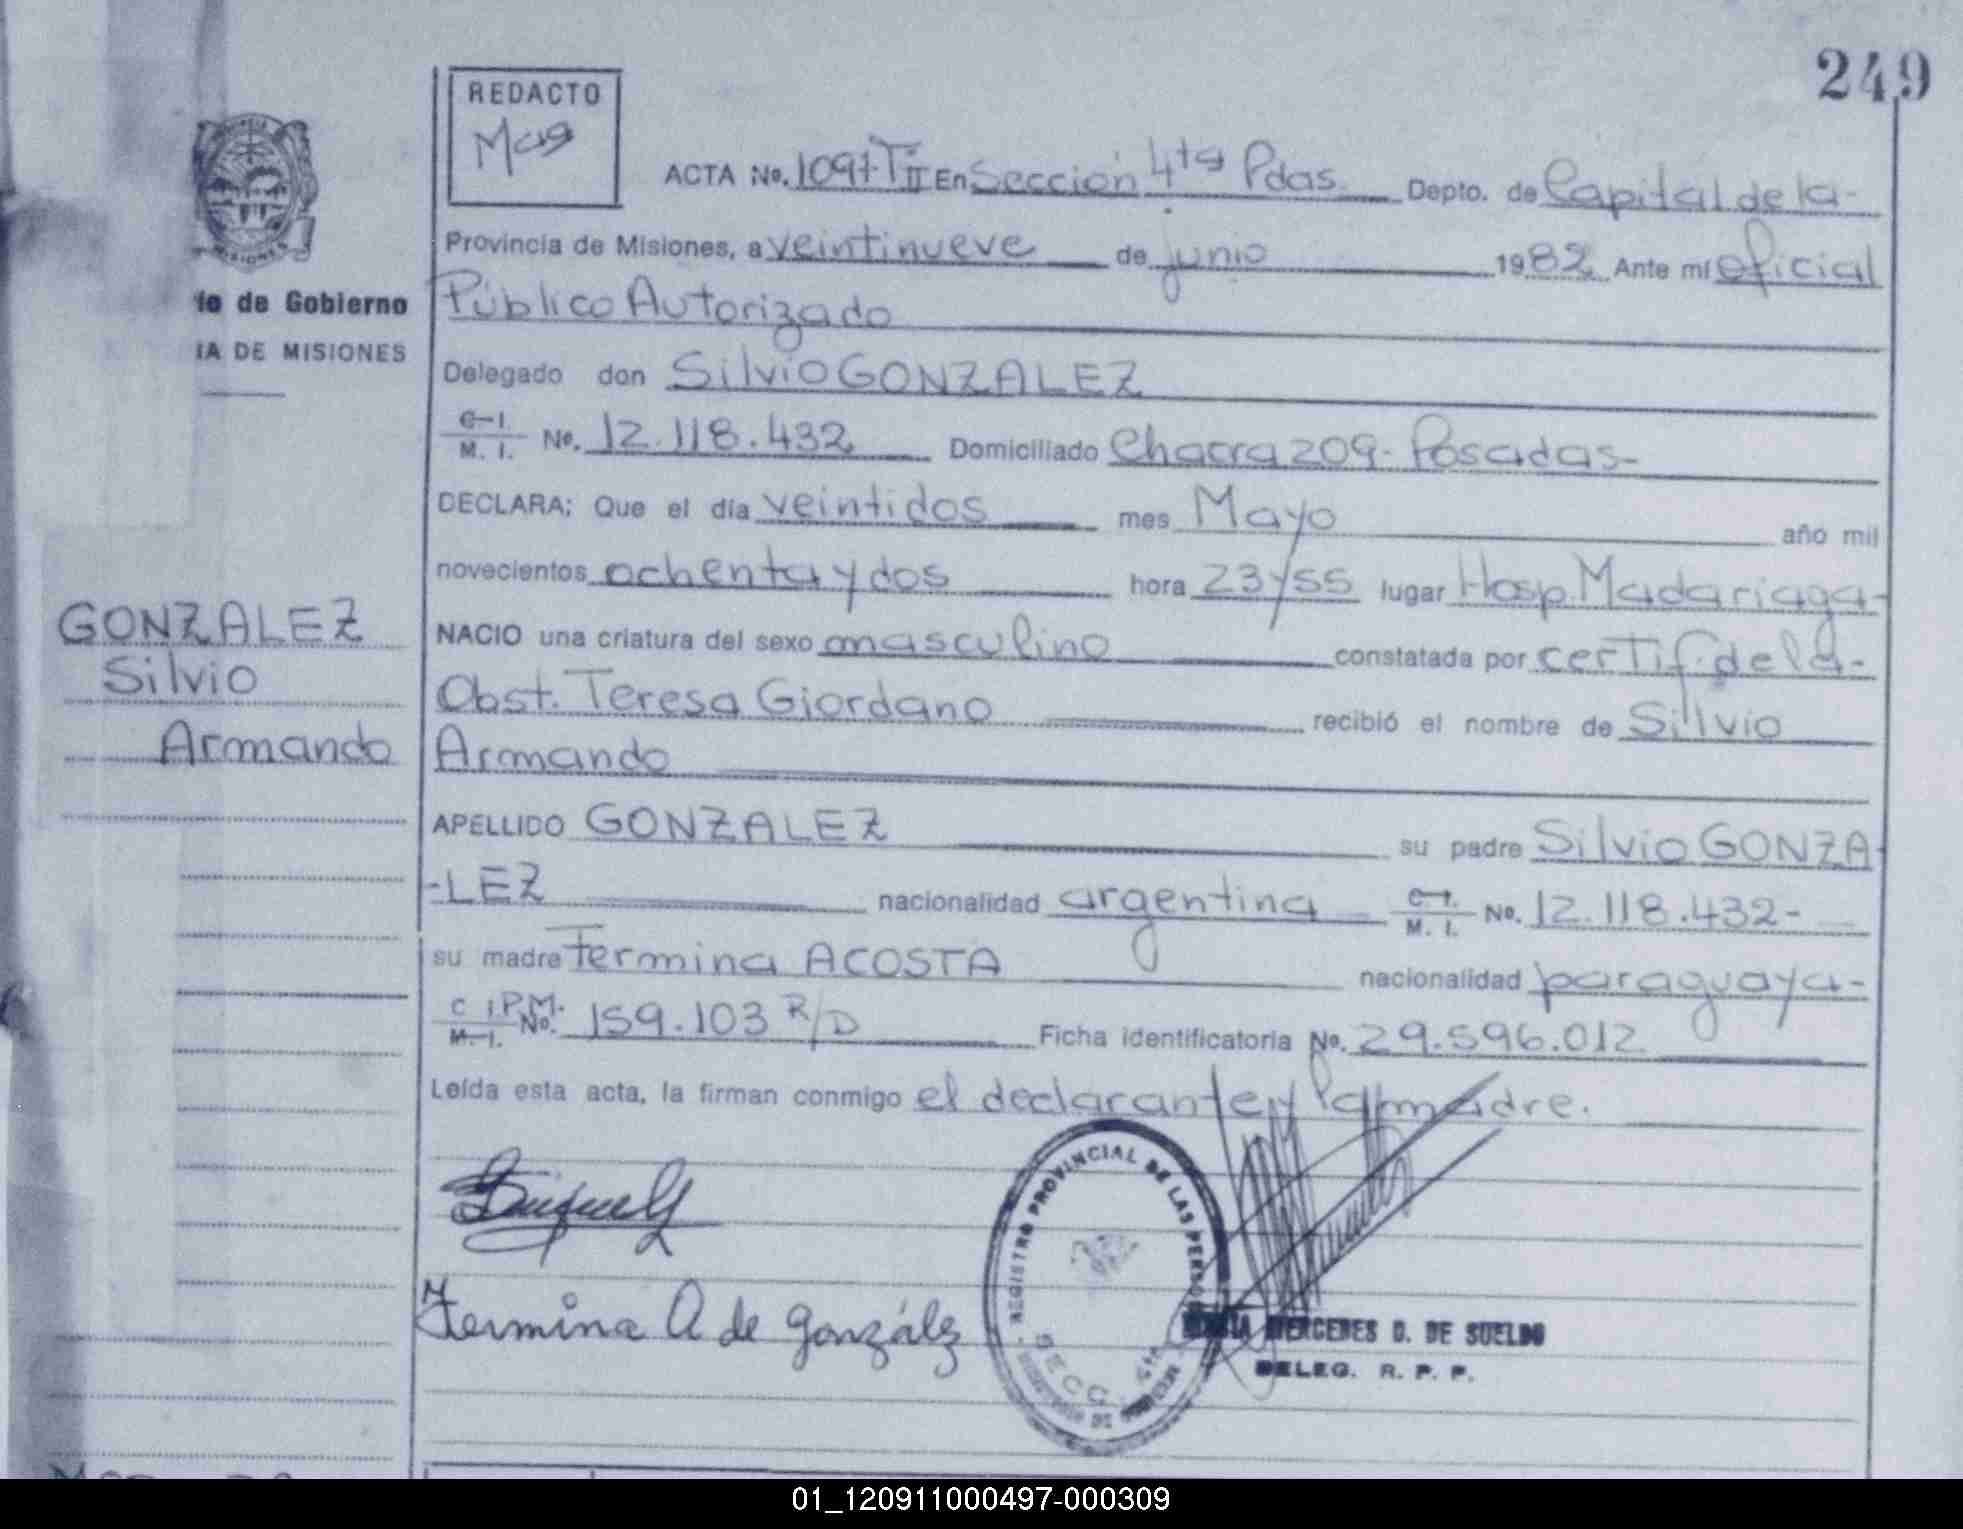 249
REDACTO
Mag
ACTA No. 1091-TII En Sección 4ta Pdas. Depto. de Capital de la-
Provincia de Misiones, a veintinueve de junio 1982 Ante mí oficial
Público Autorizado
io de Gobierno
IA DE MISIONES
Delegado don Silvio GONZALEZ
C. I. M. I. No. 12.118.432 Domiciliado Chacra 209- Posadas-
DECLARA: Que el día veintidos mes Mayo año mil
novecientos ochenta y dos hora 23 y 55 lugar Hosp. Madariaga-
GONZALEZ
Silvio
Armando
NACIO una criatura del sexo masculino constatada por certif. de la-
Obst. Teresa Giordano recibió el nombre de Silvio
Armando
APELLIDO GONZALEZ su padre Silvio GONZA
-LEZ nacionalidad argentina C. I. M. I. No. 12.118.432-
su madre Fermina ACOSTA nacionalidad paraguaya-
C I.P.M. M. I. No. 159.103 R/D Ficha identificatoria No. 29.596.012
Leída esta acta, la firman conmigo el declarante y la madre.
Fermina A de González
REGISTRO PROVINCIAL DE LAS PERSO
SECC. 4ta
MERCEDES D. DE SUELDO
DELEG. R. P. P.
01_120911000497-000309